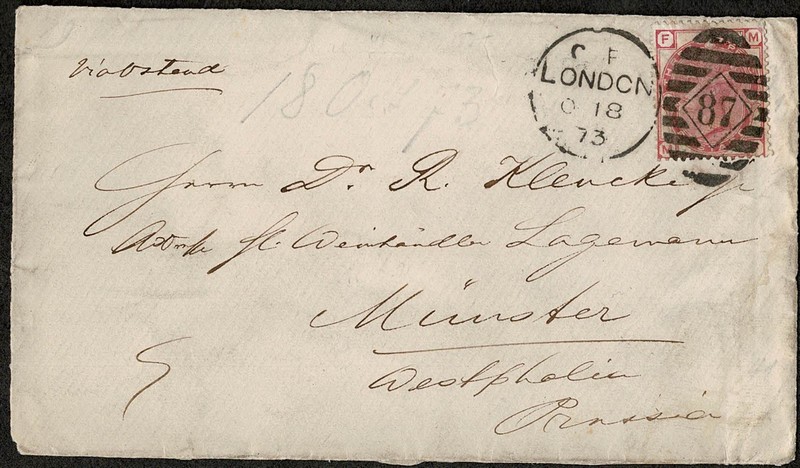 via Ostend
18 Oct 73
C F
LONDON
O 18
73
F M
87
M
Herrn Dr. R. Klencke jr
Weinhändler Lagemann
Münster
Westphalia
Prussia